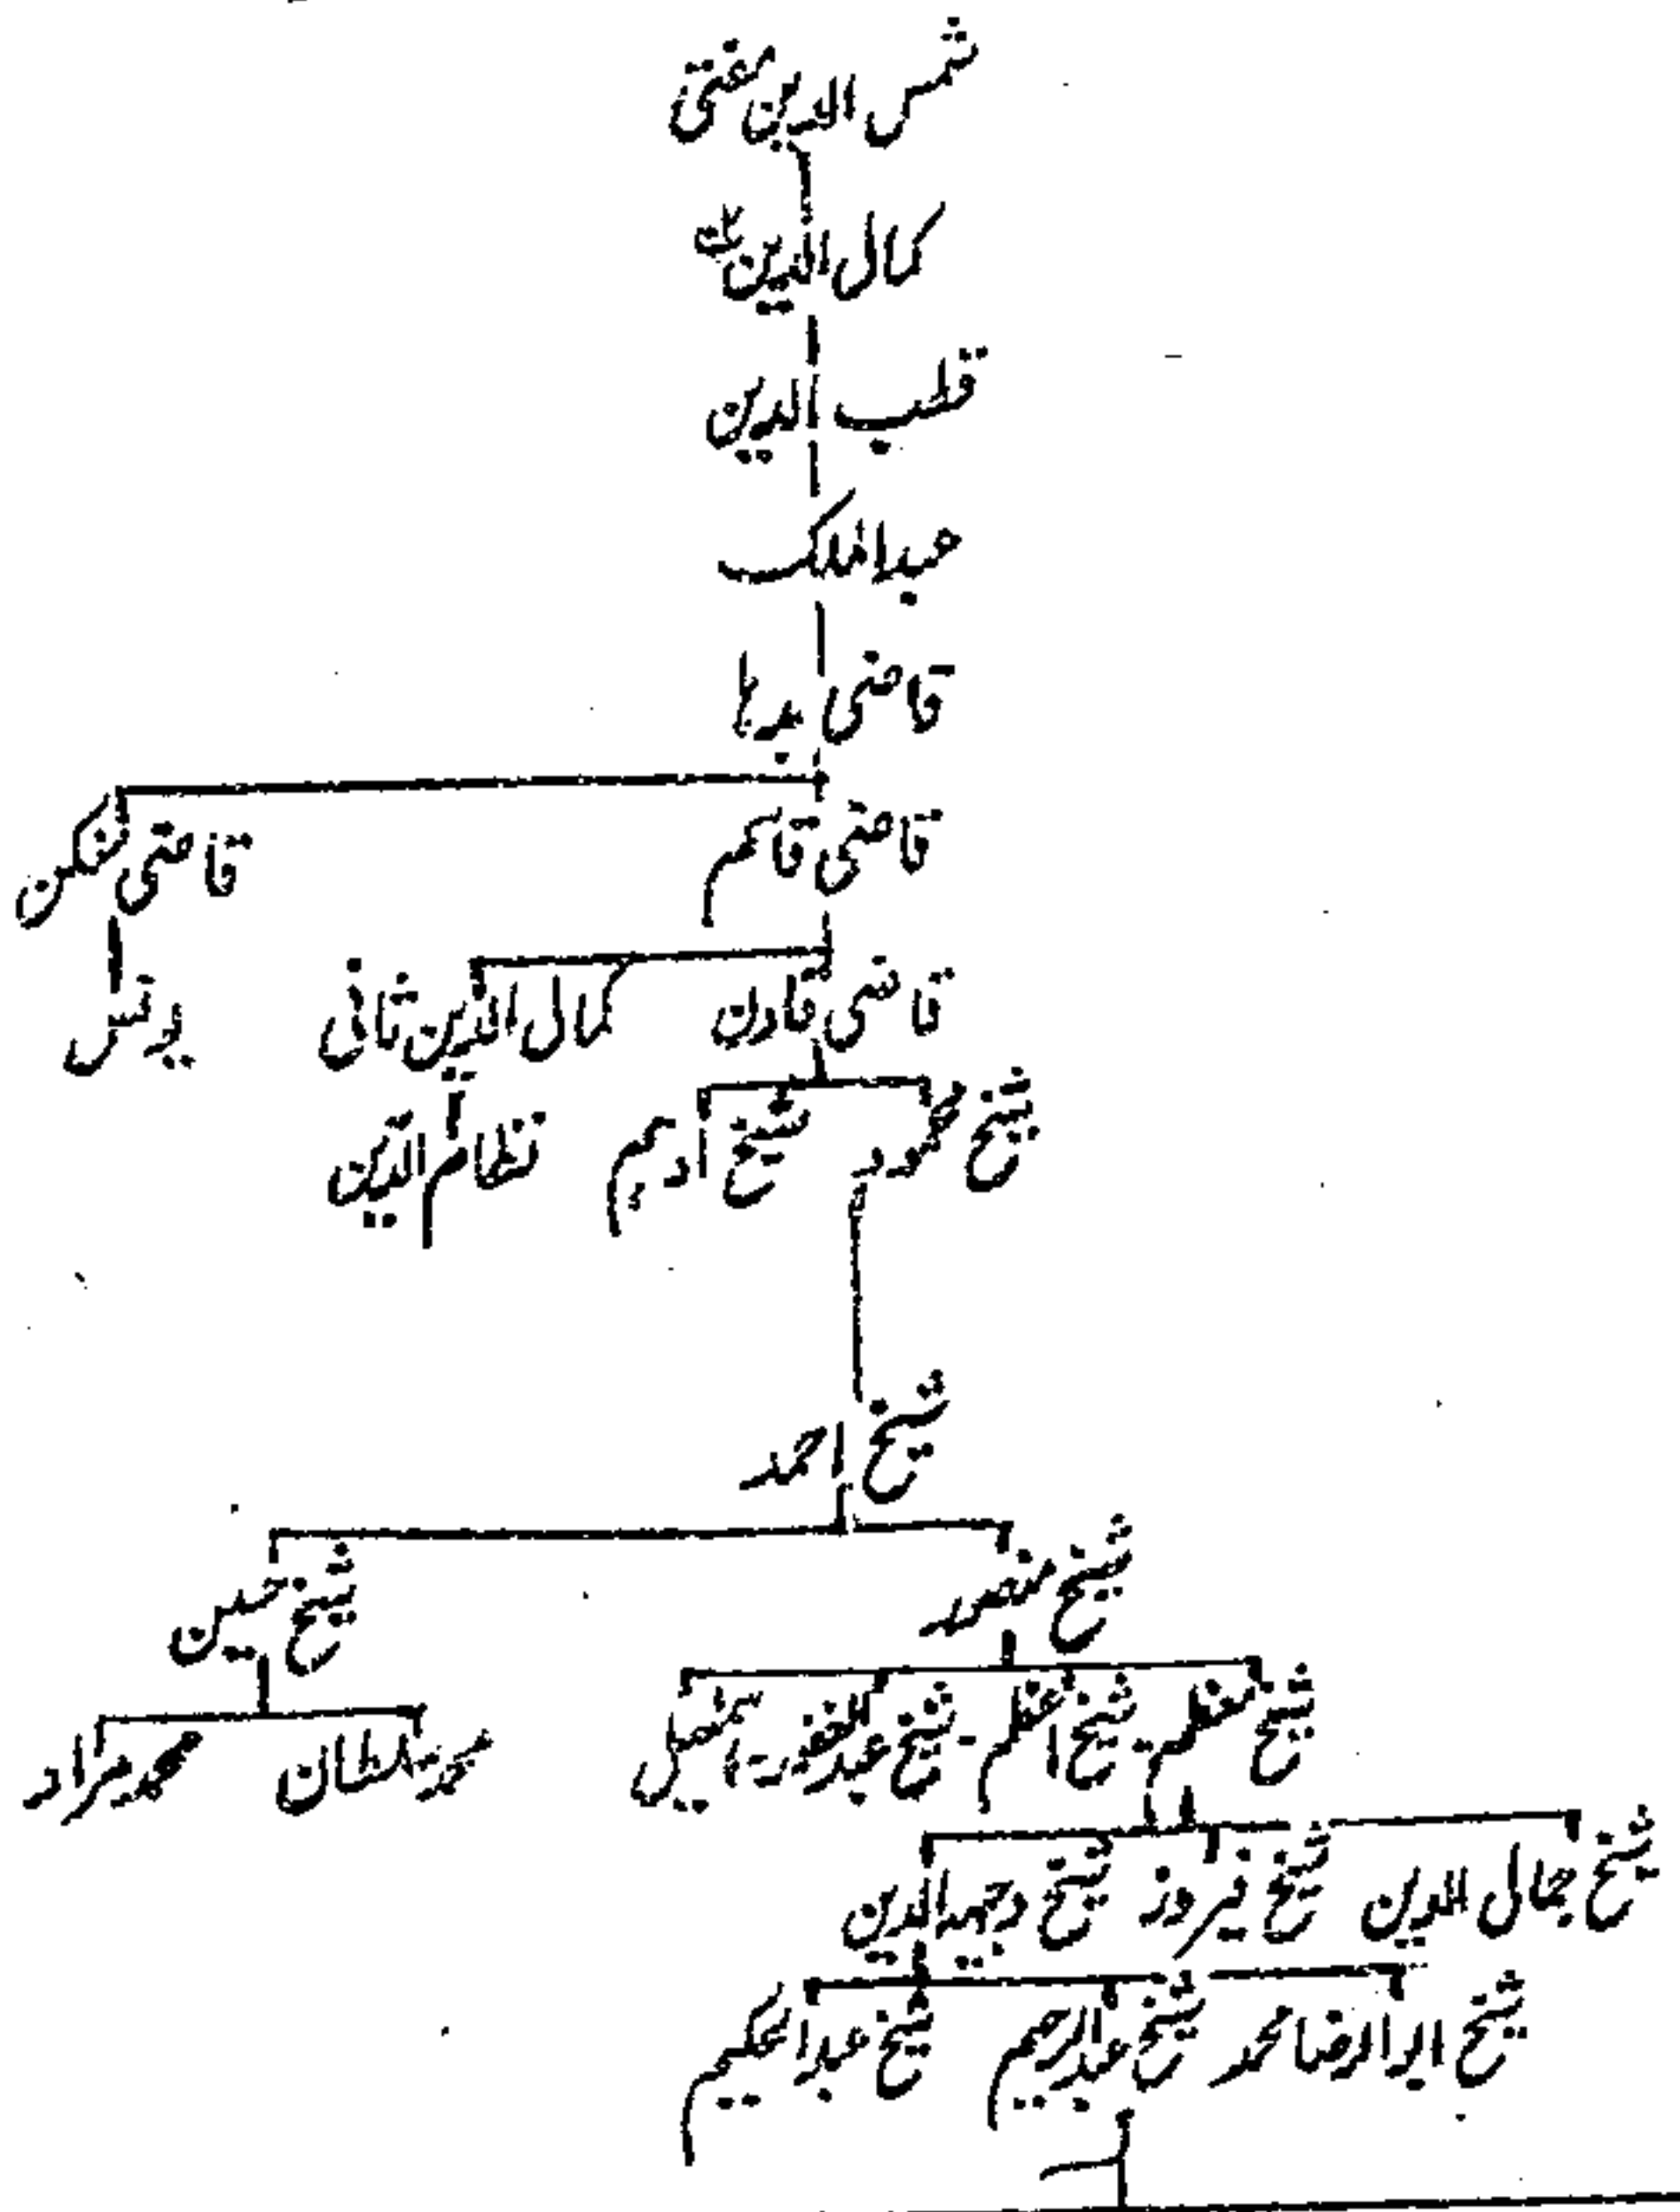 شمس الدین مفتی
کمال الدین
قطب الدین
عبدالملک
قاضی بدہا
قاضی قاسم قاضی
قاضی قادن کمال الدین ثانی یونس
شیخ محمود شیخ آدم نظام الدین
شیخ احمد
شیخ منصور شیخ حسین
شیخ معظم - شیخ اعظم - شیخ عبدالغفور - اسمٰعیل محمد سلطان محمد مراد
شیخ جمال الدین شیخ فیروز شیخ وجیہہ الدین
شیخ ابوالرضا محمد شیخ عبدالرحیم شیخ عبدالحکیم